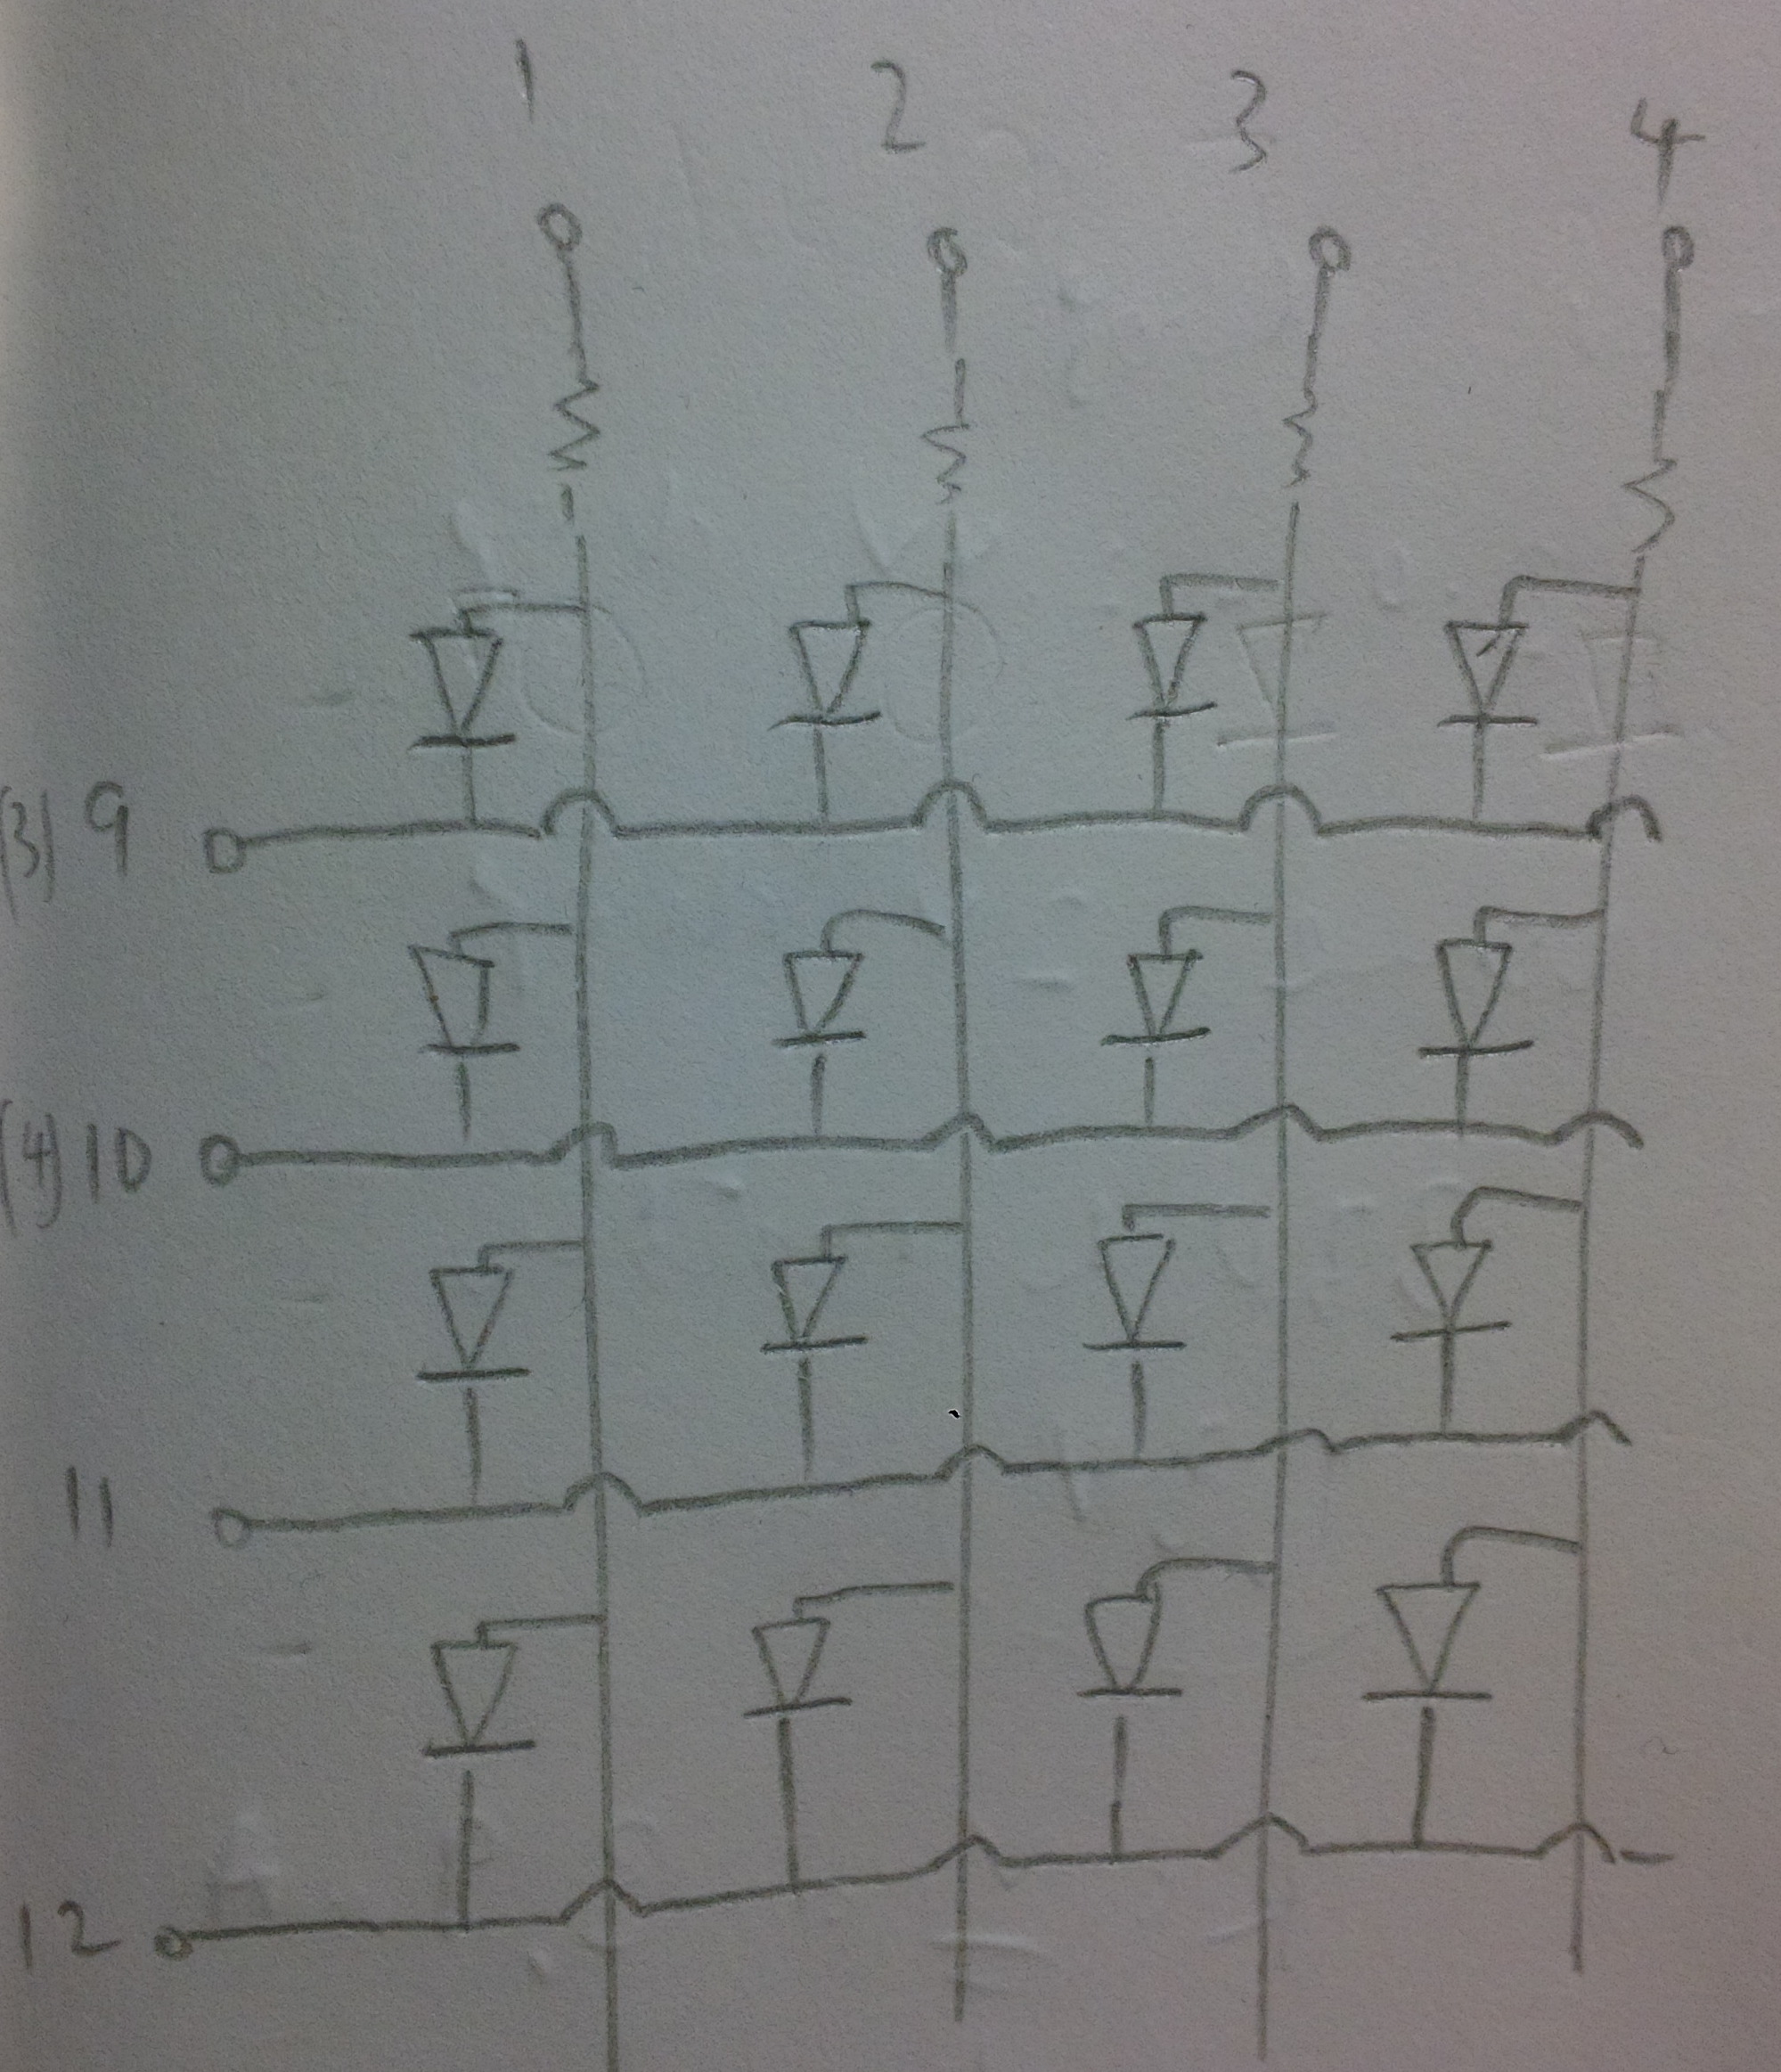 1 2 3 4
(3) 9
(4) 10
11
12